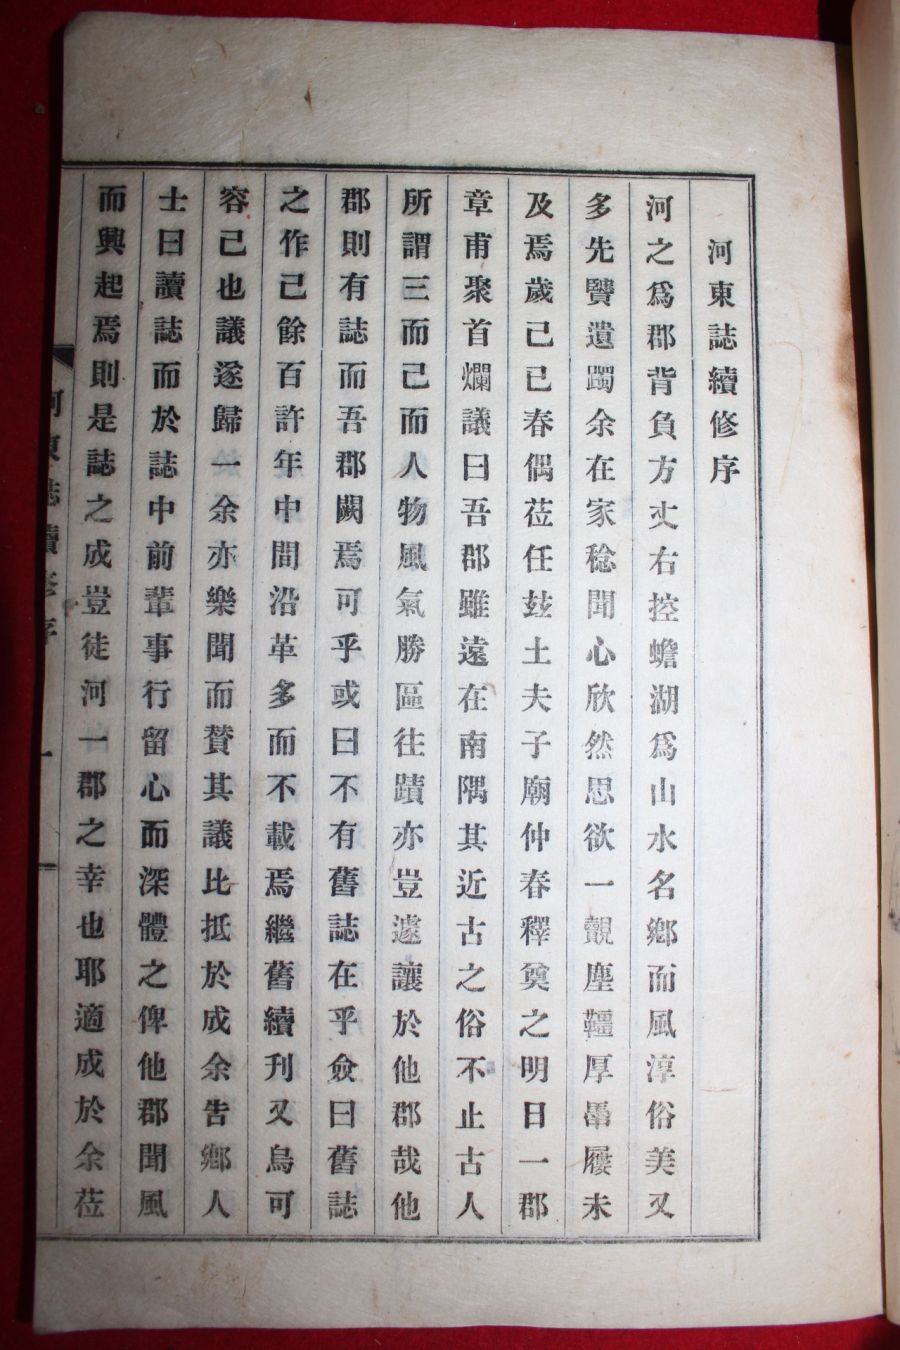 河東誌續修序
河之爲郡背負方丈右控蟾湖爲山水名鄉而風淳俗美又
多先賢遺躅余在家稔聞心欣然思欲一覩塵韁厚羃屨未
及焉歲己巳春偶莅任玆土夫子廟仲春釋奠之明日一郡
章甫聚首爛議曰吾郡雖遠在南隅其近古之俗不止古人
所謂三而已而人物風氣勝區往蹟亦豈遽讓於他郡哉他
郡則有誌而吾郡闕焉可乎或曰不有舊誌在乎僉曰舊誌
之作已餘百許年中間沿革多而不載焉繼舊續刊又烏可
容已也議遂歸一余亦樂聞而贊其議比抵於成余告鄉人
士曰讀誌而於誌中前輩事行留心而深體之俾他郡聞風
而興起焉則是誌之成豈徒河一郡之幸也耶適成於余莅
河東誌續修序 一